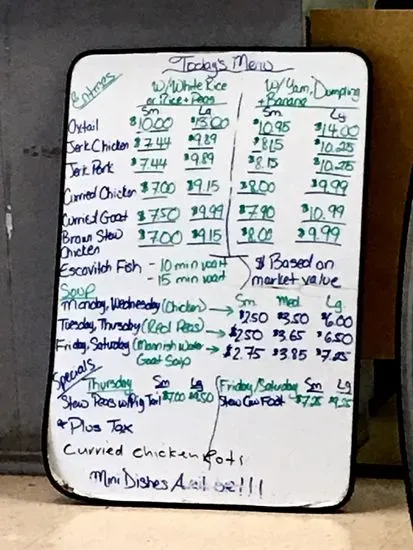 Today's Menu
Entrees w/ White Rice w/ Yam, Dumpling
or Rice + Peas + Banana
Sm Lg Sm Lg
Oxtail $10.00 $13.00 $10.95 $14.00
Jerk Chicken $7.44 $9.89 $8.15 $10.25
Jerk Pork $7.44 $9.89 $8.15 $10.25
Curried Chicken $7.00 $9.15 $8.00 $9.99
Curried Goat $7.50 $9.99 $7.90 $10.99
Brown Stew $7.00 $9.15 $8.00 $9.99
Chicken
Escovitch Fish - 10 min wait $ Based on
- 15 min wait market value
Soup Sm Med Lg
Monday, Wednesday (Chicken) → $2.50 $3.50 $6.00
Tuesday, Thursday (Red Peas) → $2.50 $3.65 $6.50
Friday, Saturday (Mannish Water → $2.75 $3.85
Goat Soup
Specials
Thursday Sm Lg Friday/Saturday Sm Lg
Stew Peas w/Pig Tail $7.00 Stew Cow Foot $7.25 $9.25
* Plus Tax
Curried chicken
Mini Dishes !!!